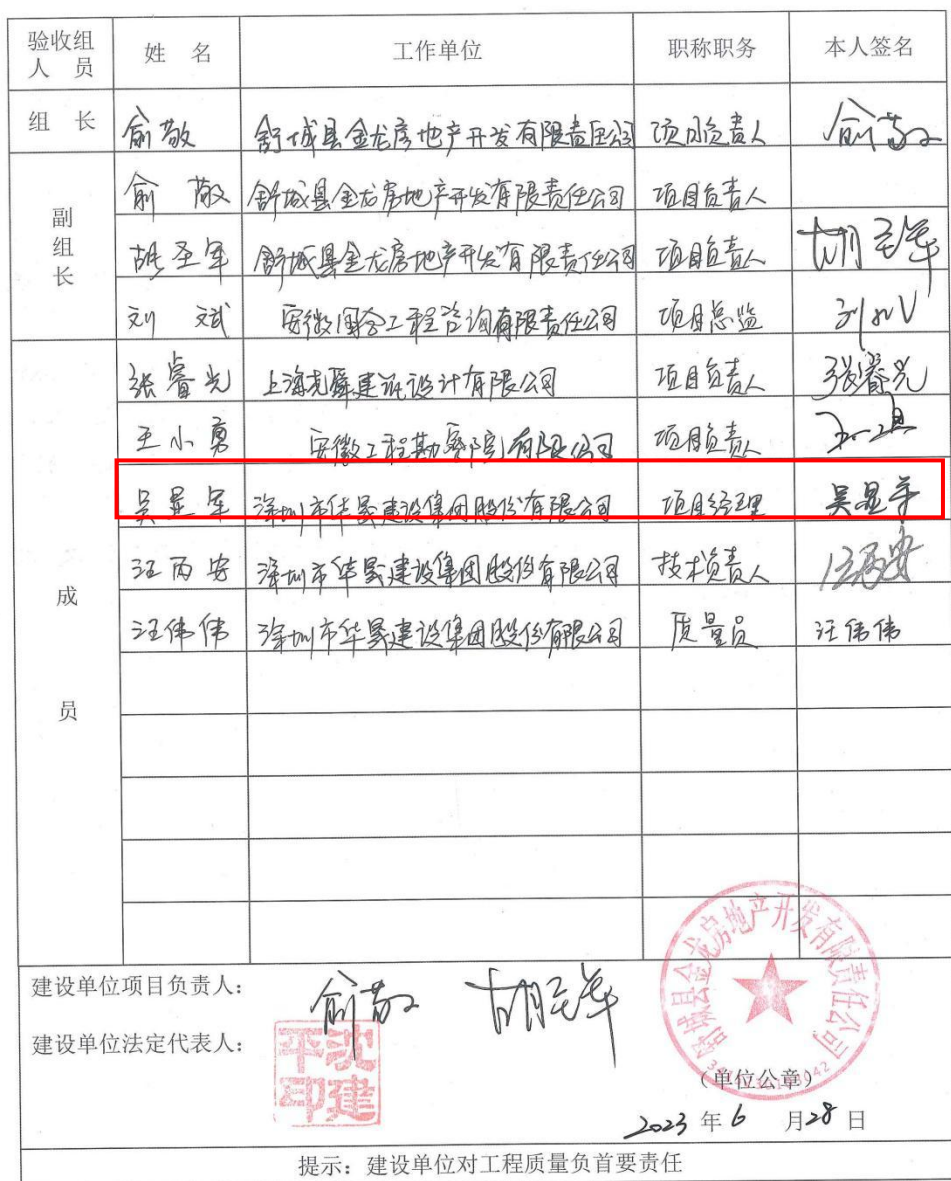 验收组人 员 姓 名 工作单位 职称职务 本人签名
组 长 俞敬 舒城县金龙房地产开发有限责任公司 项目负责人 俞敬
副组长 俞 敬 舒城县金龙房地产开发有限责任公司 项目负责人
胡圣军 舒城县金龙房地产开发有限责任公司 项目负责人 胡圣军
刘 斌 安徽国合工程咨询有限责任公司 项目总监 刘斌
成 员 张睿光 上海尧舜建筑设计有限公司 项目负责人 张睿光
王小勇 安徽工程勘察院有限公司 项目负责人
吴显军 深圳市华晟建设集团股份有限公司 项目经理 吴显军
汪丙安 深圳市华晟建设集团股份有限公司 技术负责人 汪丙安
汪伟伟 深圳市华晟建设集团股份有限公司 质量员 汪伟伟
建设单位项目负责人: 俞敬 胡圣军
建设单位法定代表人: 沈建平印
舒城县金龙房地产开发有限责任公司
(单位公章)
2023 年 6 月 28 日
提示: 建设单位对工程质量负首要责任